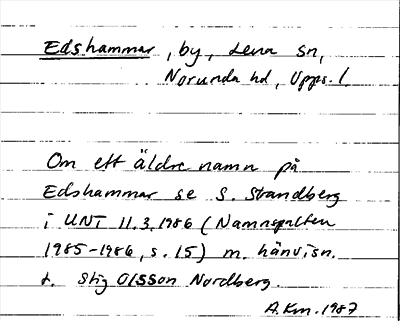 Edshammar, by, Lena sn,
Norunda hd, Upps. l.
Om ett äldre namn på
Edshammar se S. Strandberg
i UNT 11.3.1986 (Namnspalten
1985-1986, s. 15) m. hänvisn.
t. Stig Olsson Nordberg.
A.Km. 1987